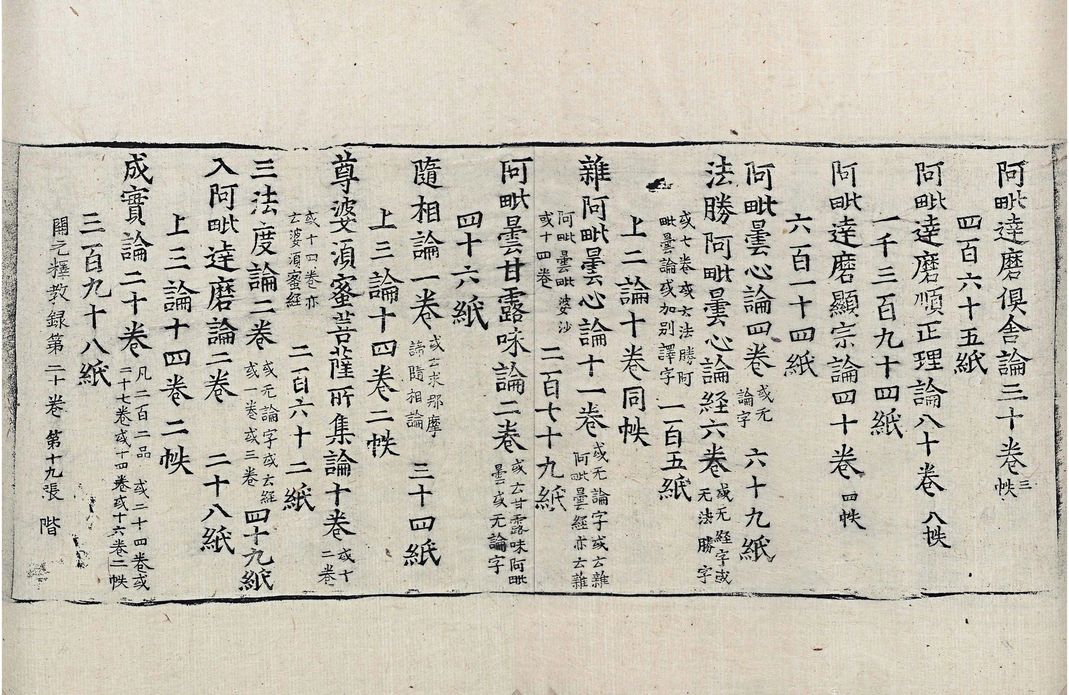 阿毗達磨俱舍論三十卷三帙
四百六十五紙
阿毗達磨順正理論八十卷八帙
一千三百九十四紙
阿毗達磨顯宗論四十卷四帙
六百一十四紙
阿毗曇心論四卷或无論字六十九紙
法勝阿毗曇心論経六卷或无経字或无法勝字
或七卷或云法勝阿毗曇論或加别譯字一百五紙
上二論十卷同帙
雜阿毗曇心論十一卷或无論字或云雜阿毗曇經亦云雜
阿毗曇毗婆沙或十四卷二百七十九紙
阿毗曇甘露味論二卷或云甘露味阿毗曇或无論字
四十六紙
隨相論一卷或云求那摩諦隨相論三十四紙
上三論十四卷二帙
尊婆湏蜜菩薩所集論十卷或十二卷
或十四卷亦云婆湏蜜經二百六十二紙
三法度論二卷或无論字或云経或一卷或三卷四十九紙
入阿毗達磨論二卷二十八紙
上三論十四卷二帙
成實論二十卷凡二百二品或二十四卷或二十七卷或十四卷或十六卷二帙
三百九十八紙
開元釋教録第二十卷第十九張階